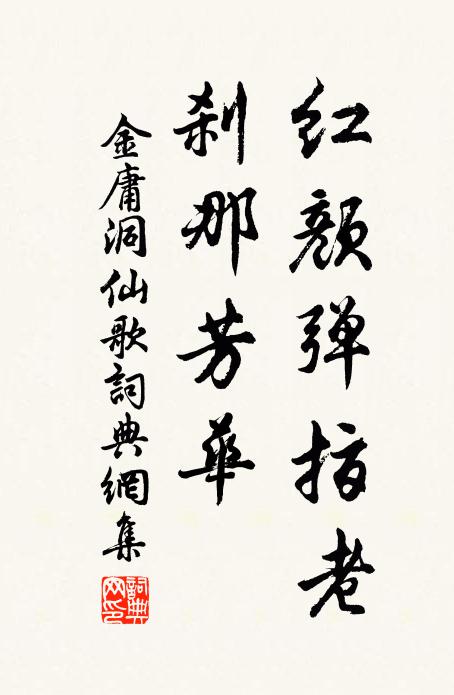 红颜弹指老
刹那芳華
金庸洞仙歌詞典網集
詞典網印